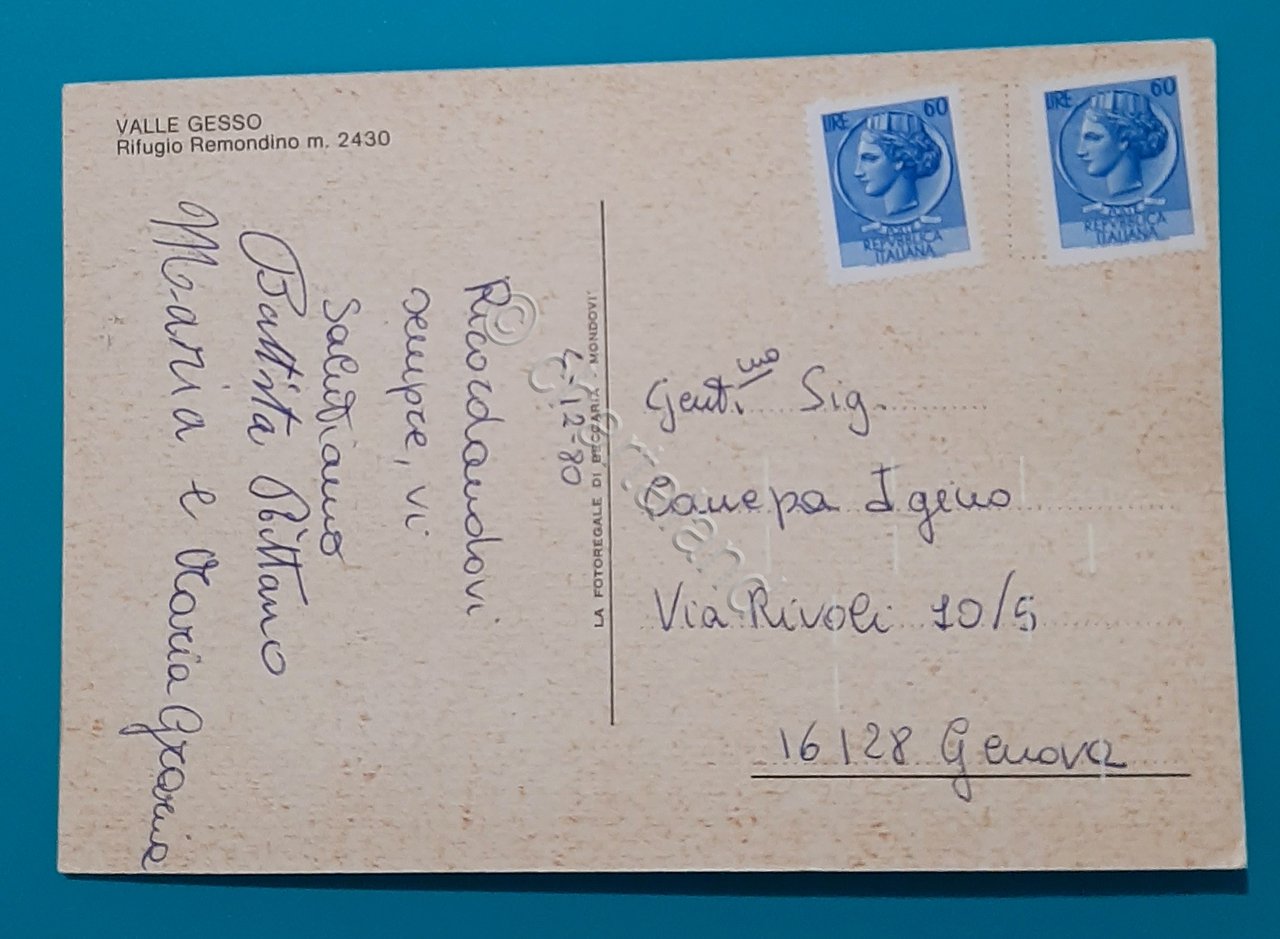 VALLE GESSO
Rifugio Remondino m. 2430
4-12-80
Ricordandovi
sempre, vi
salutiamo
Battista
Maria e Maria Grazia
LA FOTOREGALE DI BECCARIA - MONDOVI'
LIRE 60
REPVBBLICA
ITALIANA
LIRE 60
REPVBBLICA
ITALIANA
Gent.mo Sig.
Canepa Igino
Via Rivoli 10/5
16128 Genova